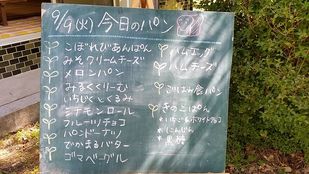 9/9(火) 今日のパン
こぼれびあんぱん
みそクリームチーズ
メロンパン
みるくくりーむ
いちじくとくるみ
シナモンロール
フルーツチョコ
パンドーナツ
でかまるバター
ゴマベーグル
ハムエッグ
ハムチーズ
ごはみ食パン
きのこぱん
いちご&ホワイトチョコ
にんじん
黒糖